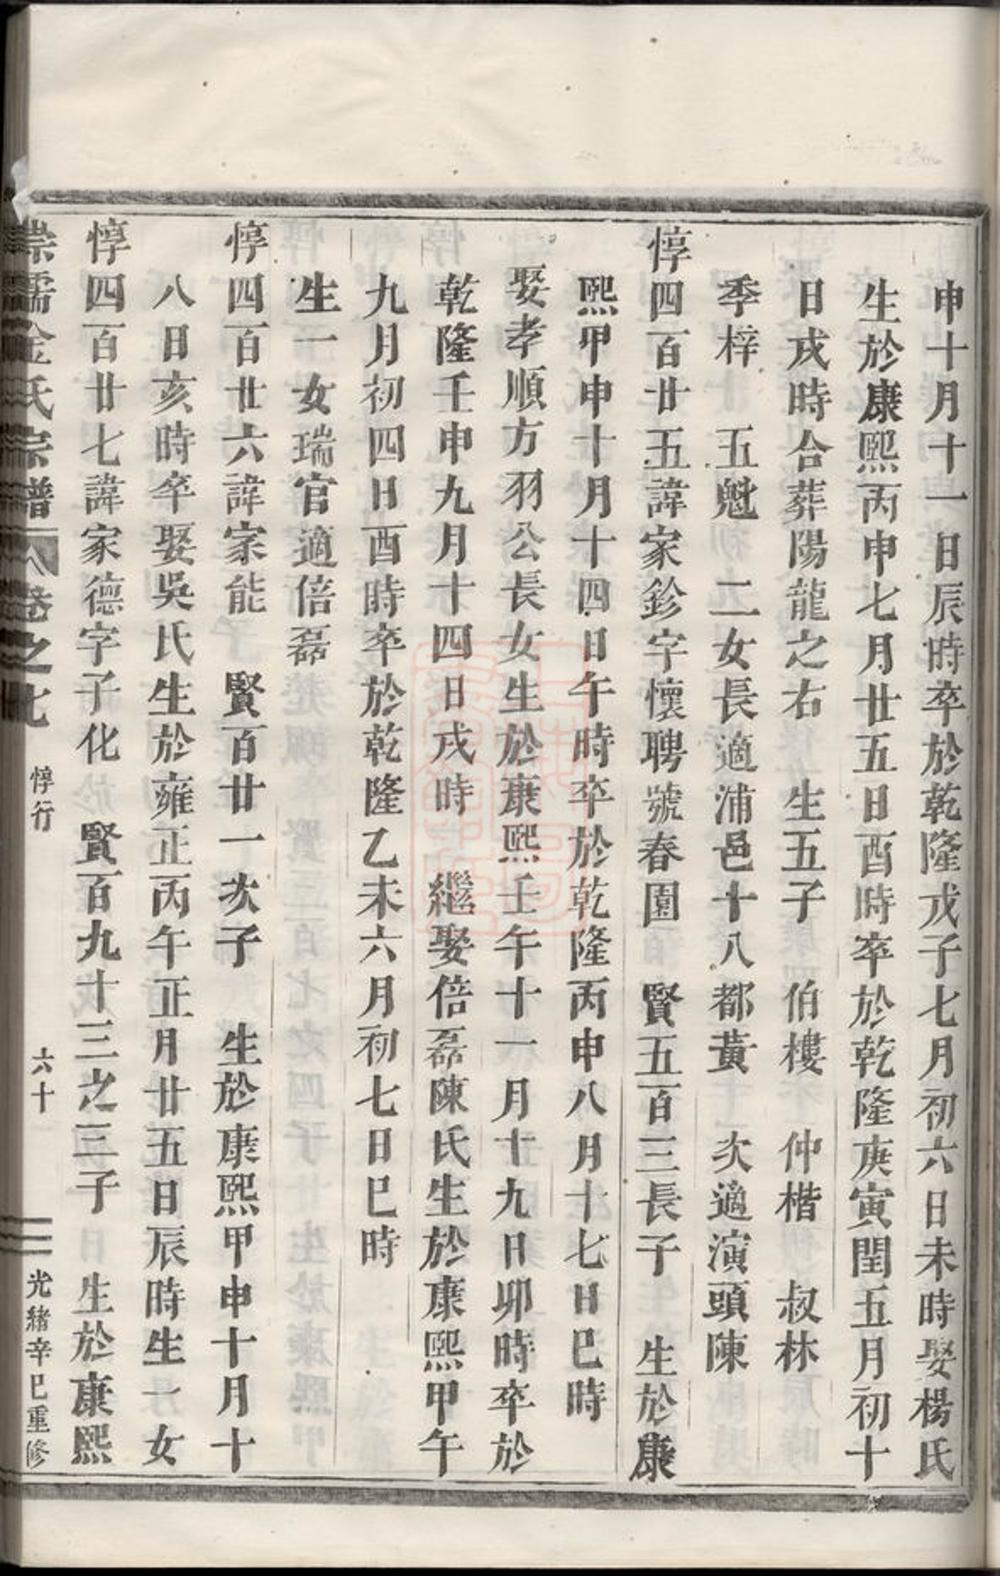 申十月十一日辰時卒於乾隆戊子七月初六日未時娶楊氏
生於康熙丙申七月廿五日酉時卒於乾隆庚寅閏五月初十
日戌時合葬陽龍之右 生五子 伯樓 仲楷 叔林
季梓 五魁 二女長適浦邑十八都黃 次適演頭陳
惇四百廿五諱家鉁字懷聘號春園 賢五百三長子 生於康
熙甲申十月十四日午時卒於乾隆丙申八月十七日巳時
娶孝順方羽公長女生於康熙壬午十一月十九日卯時卒於
乾隆壬申九月十四日戌時 繼娶倍磊陳氏生於康熙甲午
九月初四日酉時卒於乾隆乙未六月初七日巳時
生一女瑞官適倍磊
惇四百廿六諱家能 賢百廿一次子 生於康熙甲申十月十
八日亥時卒娶吳氏生於雍正丙午正月廿五日辰時生一女
惇四百廿七諱家德字子化 賢百九十三之三子 生於康熙
崇儒金氏宗譜 卷之七 惇行 六十 光緒辛巳重修